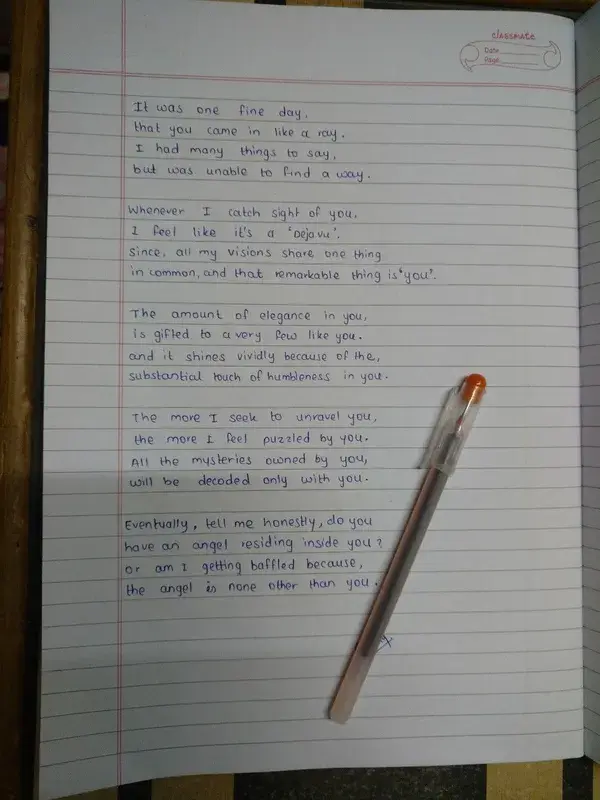 classmate
Date
Page
It was one fine day,
that you came in like a ray.
I had many things to say,
but was unable to find a way.
Whenever I catch sight of you,
I feel like it's a 'Dejavu'.
Since, all my visions share one thing
in common, and that remarkable thing is 'you'.
The amount of elegance in you,
is gifted to a very few like you.
and it shines vividly because of the,
substantial touch of humbleness in you.
The more I seek to unravel you,
the more I feel puzzled by you.
All the mysteries owned by you,
will be decoded only with you.
Eventually, tell me honestly, do you
have an angel residing inside you?
or am I getting baffled because,
the angel is none other than you.